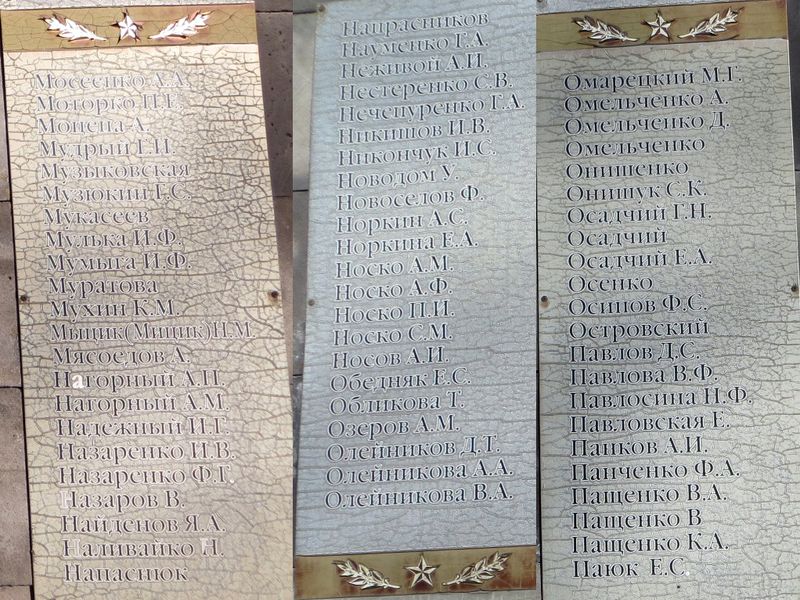 Мосеенко А.А.
Моторко П.Е.
Моцепа А.
Мудрый Г.И.
Музыковская
Музюкин Г.С.
Мукасеев
Мулька И.Ф.
Мумыга И.Ф.
Муратова
Мухин К.М.
Мыщик(Мицик)П.М
Мясоедов А.
Нагорный А.П.
Нагорный А.М.
Надежный И.Г.
Назаренко И.В.
Назаренко Ф.Г.
Назаров В.
Найденов Я.А.
Наливайко Н.
Напаснюк
Напрасников
Науменко Г.А.
Неживой А.И.
Нестеренко С.В.
Нечепуренко Г.А.
Никишов И.В.
Никончук И.С.
Новодом У.
Новоселов Ф.
Норкин А.С.
Норкина Е.А.
Носко А.М.
Носко А.Ф.
Носко П.И.
Носко С.М.
Носов А.И.
Обедняк Е.С.
Обликова Т.
Озеров А.М.
Олейников Д.Т.
Олейникова А.А.
Олейникова В.А.
Омарецкий М.Г.
Омельченко А.
Омельченко Д.
Омельченко
Онишенко
Онищук С.К.
Осадчий Г.Н.
Осадчий
Осадчий Е.А.
Осенко
Осипов Ф.С.
Островский
Павлов Д.С.
Павлова В.Ф.
Павлосина Н.Ф.
Павловская Е.
Панков А.И.
Панченко Ф.А.
Пащенко В.А.
Пащенко В
Пащенко К.А.
Паюк Е.С.